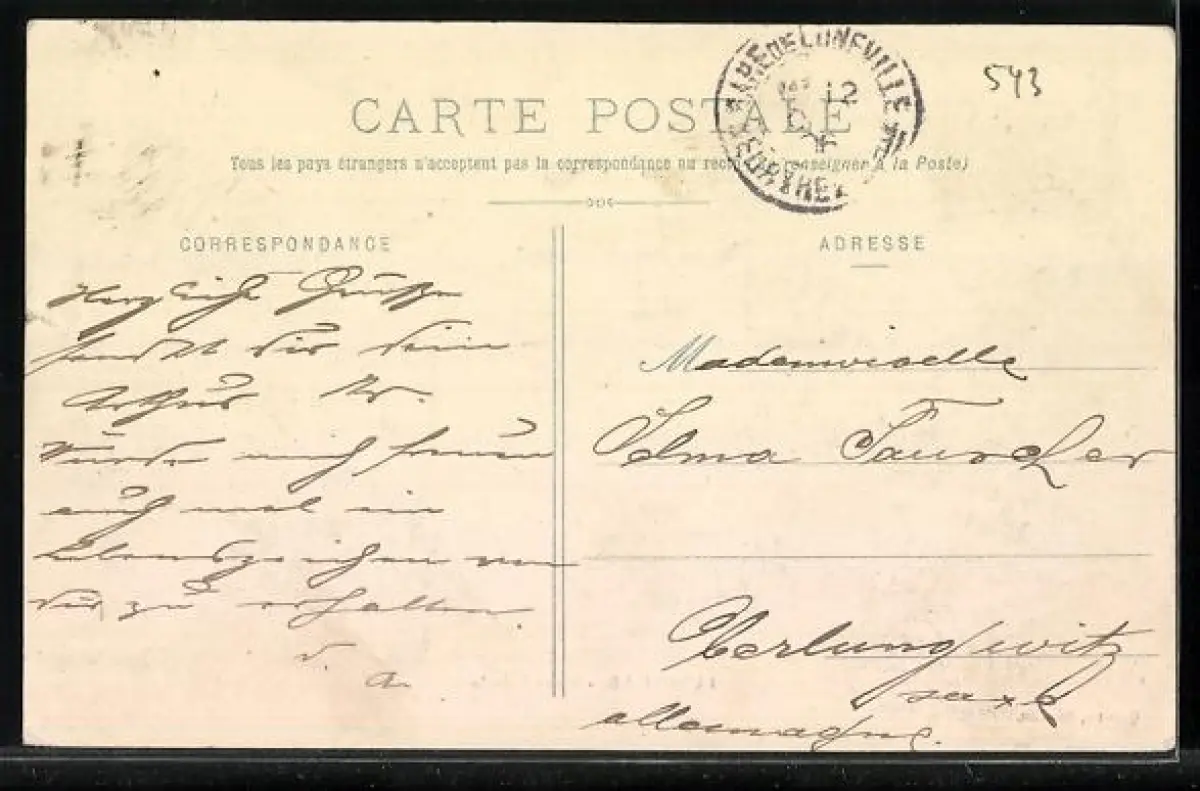 543
CARTE POSTALE
Tous les pays étrangers n'acceptent pas la correspondance au recto (renseigner à la Poste)
GARE DE LUNEVILLE
12
MEURTHE
CORRESPONDANCE
Herzliche Grüße
sendet dir dein
Arthur Kr.
Würde mich freuen
auch mal ein
Lebenszeichen von
dir zu erhalten
d.
A.
ADRESSE
Mademoiselle
Selma Tauscher
Oberlungwitz
saxe
allemagne.